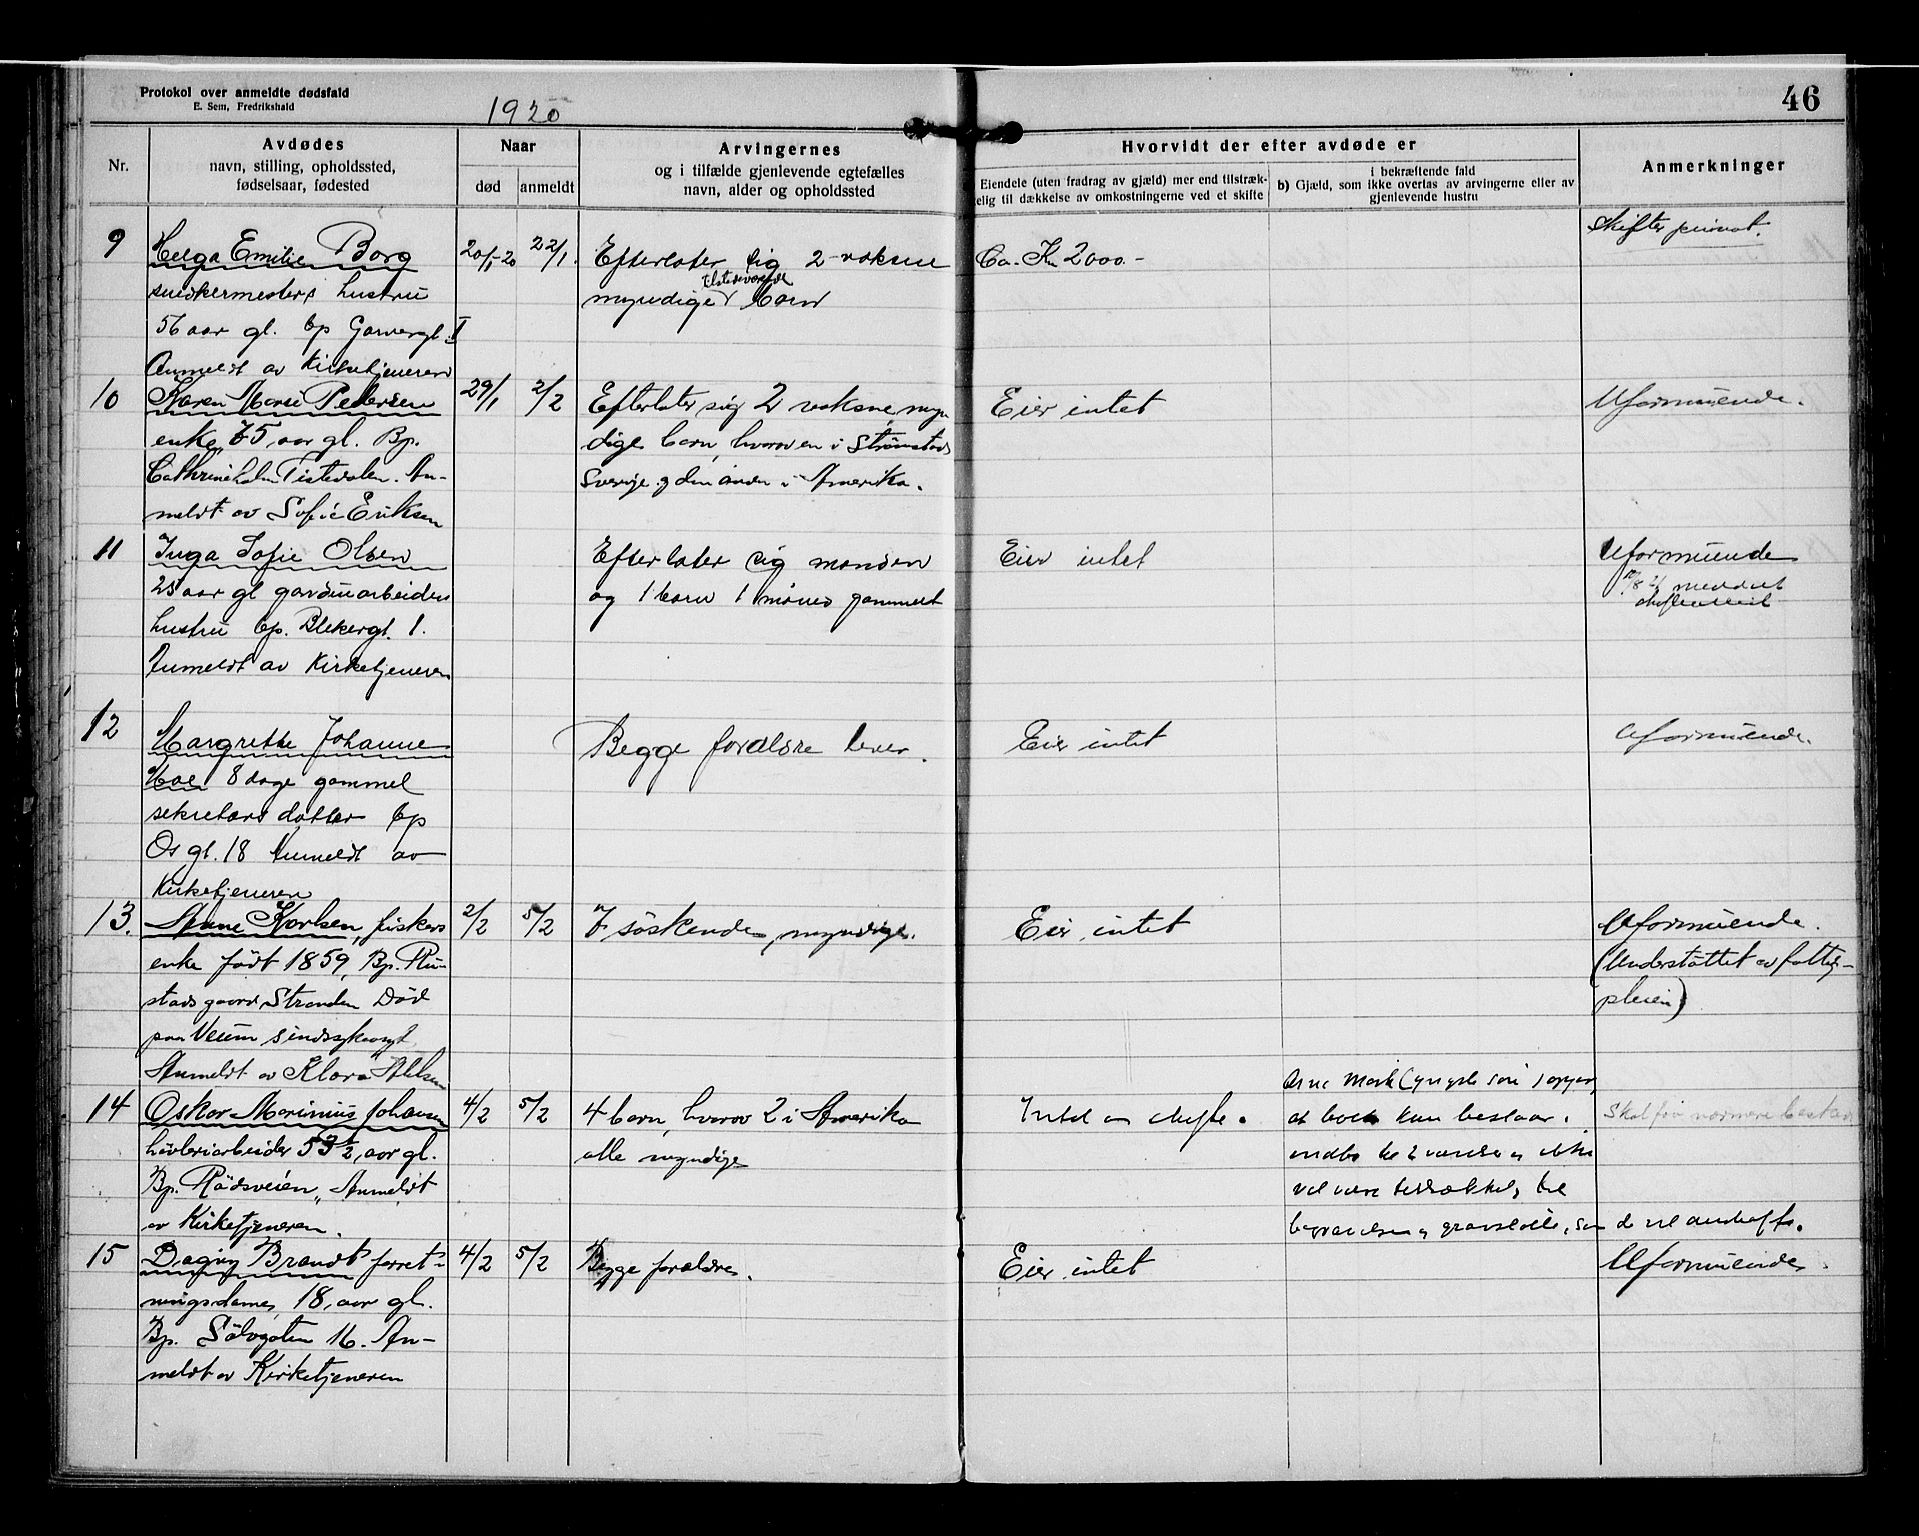 Protokol over anmeldte dødsfald
E. Sem, Fredrikshald
1920
46
Nr.
Avdødes
navn, stilling, opholdssted,
fødselsaar, fødested
Naar
død
anmeldt
Arvingernes
og i tilfælde gjenlevende egtefælles
navn, alder og opholdssted
Hvorvidt der efter avdøde er
Eiendele (uten fradrag av gjæld) mer end tilstræk-
kelig til dækkelse av omkostningerne ved et skifte
i bekræftende fald
b) Gjæld, som ikke overtas av arvingerne eller av
gjenlevende hustru
Anmerkninger
9
Helga Emilie Borg
snedkermesters hustru
56 aar gl. bp Garvergt. I
Anmeldt av Kirketjeneren
20/1-20
22/1.
Efterlater sig 2 voksne
tilstedeværende
myndige barn
Ca. Kr 2000.-
Skiftes privat.
10
Karen Marie Pedersen
enke, 75 aar gl. Bp.
Cathrineholm Tistedalen. An-
meldt av Sofie Eriksen
29/1
2/2
Efterlater sig 2 voksne, myn
dige barn, hvorav en i Strømstad
Sverige og den anden i Amerika.
Eier intet
Uformuende.
11
Inga Sofie Olsen
25 aar gl gardinarbeiders
hustru bp. Blekergt. 1.
Anmeldt av Kirketjeneren
Efterlater sig manden
og 1 barn 1 maaned gammelt
Eier intet
Uformuende
meddelt
12
Margrethe Johanne
Moe 8 dage gammel
sekretærs datter bp
Os gt. 18 Anmeldt av
Kirketjeneren
Begge forældre lever.
Eier intet
Uformuende.
13.
Anne Karlsen, fiskers
enke født 1859, Bp. Ru-
stadsgaard Stranden Død
paa Veum sindssykeasyl
Anmeldt av Klara
2/2
5/2
7 søskende, myndige.
Eier intet
Uformuende.
(Understøttet av fattig-
pleien)
14
Oskar Marinius Johansen
høvleriarbeider 53½ aar gl.
Bp. Rødsveien. Anmeldt
av Kirketjeneren.
4/2
5/2
4 barn, hvorav 2 i Amerika
alle myndige
Intet at skifte.
Arne Mork (yngste søn) opgav
at boet kun bestaar i
indbo til 2 værelser og ikke
vil være tilstrækkelig til
begravelsen og gravstøtte, som de vil anskaffe.
Skal faa nærmere besked
15
Dagny Brandt forret-
ningsdame, 18 aar gl.
Bp. Sølvgaten 16. An-
meldt av Kirketjeneren
4/2
5/2
Begge forældre.
Eier intet
Uformuende.